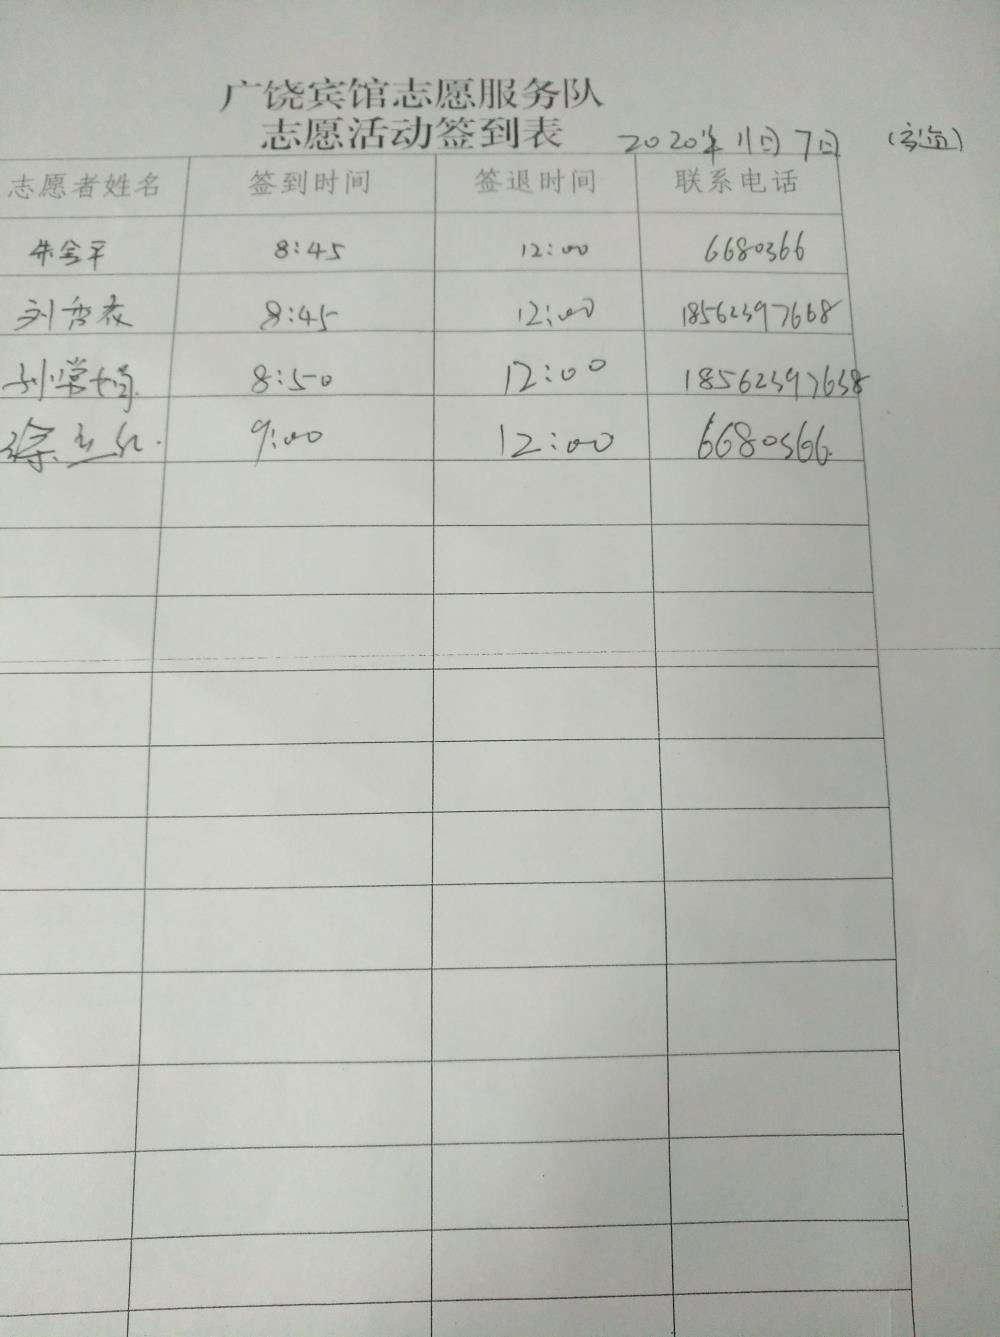 广饶宾馆志愿服务队
志愿活动签到表 2020年11月7日
志愿者姓名 签到时间 签退时间 联系电话
朱金平 8:45 12:00 6680366
刘秀衣 8:45 12:00 18562397668
8:50 12:00 18562397638
徐 9:00 12:00 6680366